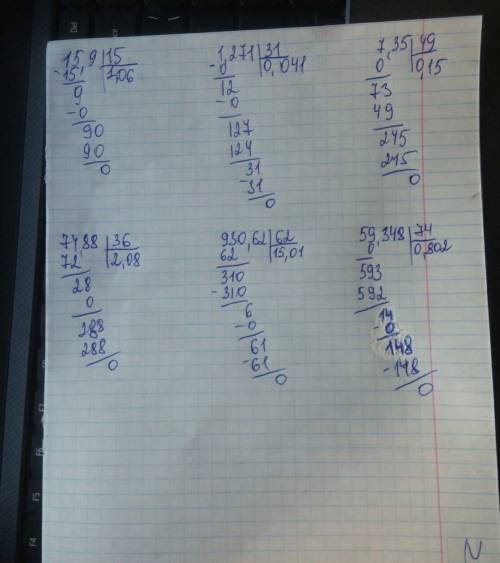 15,9 | 15
-15, | 1,06
9
-0
90
90
0
1,271 | 31
-0 | 0,041
12
-0
127
124
31
-31
0
7,35 | 49
0 | 0,15
73
49
245
245
0
74,88 | 36
72 | 2,08
28
0
288
288
0
930,62 | 62
62 | 15,01
310
-310
6
-0
61
-61
0
59,348 | 74
0 | 0,802
593
592
14
-0
148
-148
0
N
Del
F6
F5
F4